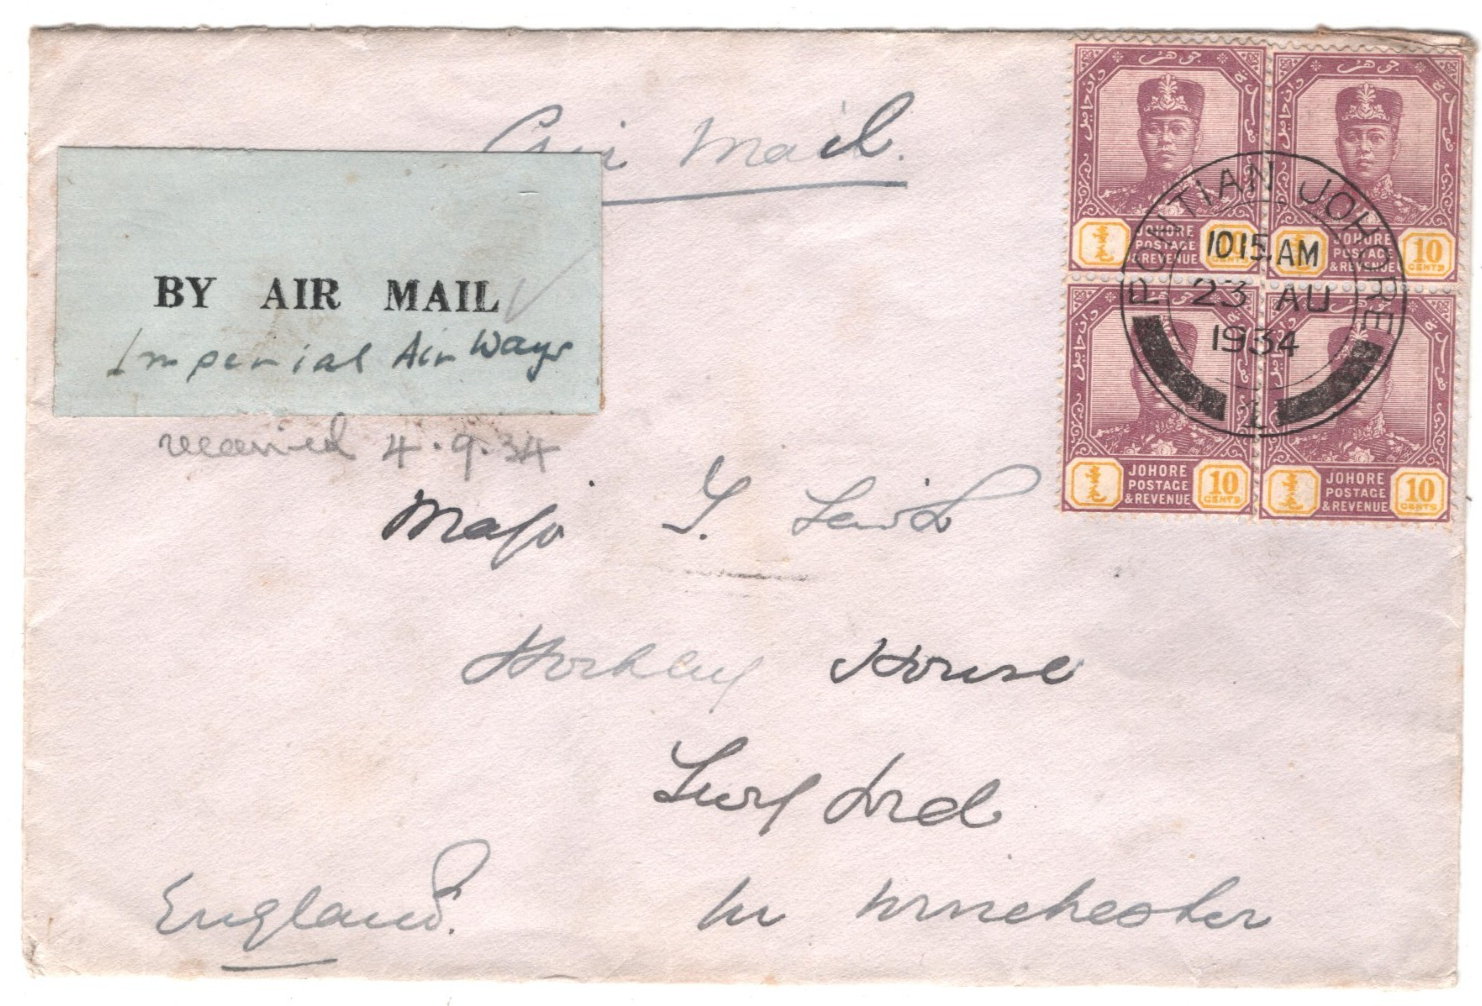 Air Mail.
BY AIR MAIL
Imperial Air Ways
received 4.9.34
Major
House
Twyford
Nr Winchester
England.
JOHORE
POSTAGE
& REVENUE
10
CENTS
JOHORE
POSTAGE
& REVENUE
10
CENTS
JOHORE
POSTAGE
& REVENUE
10
CENTS
JOHORE
POSTAGE
& REVENUE
10
CENTS
PONTIAN JOHORE
10 15. AM
23 AU
1934
1